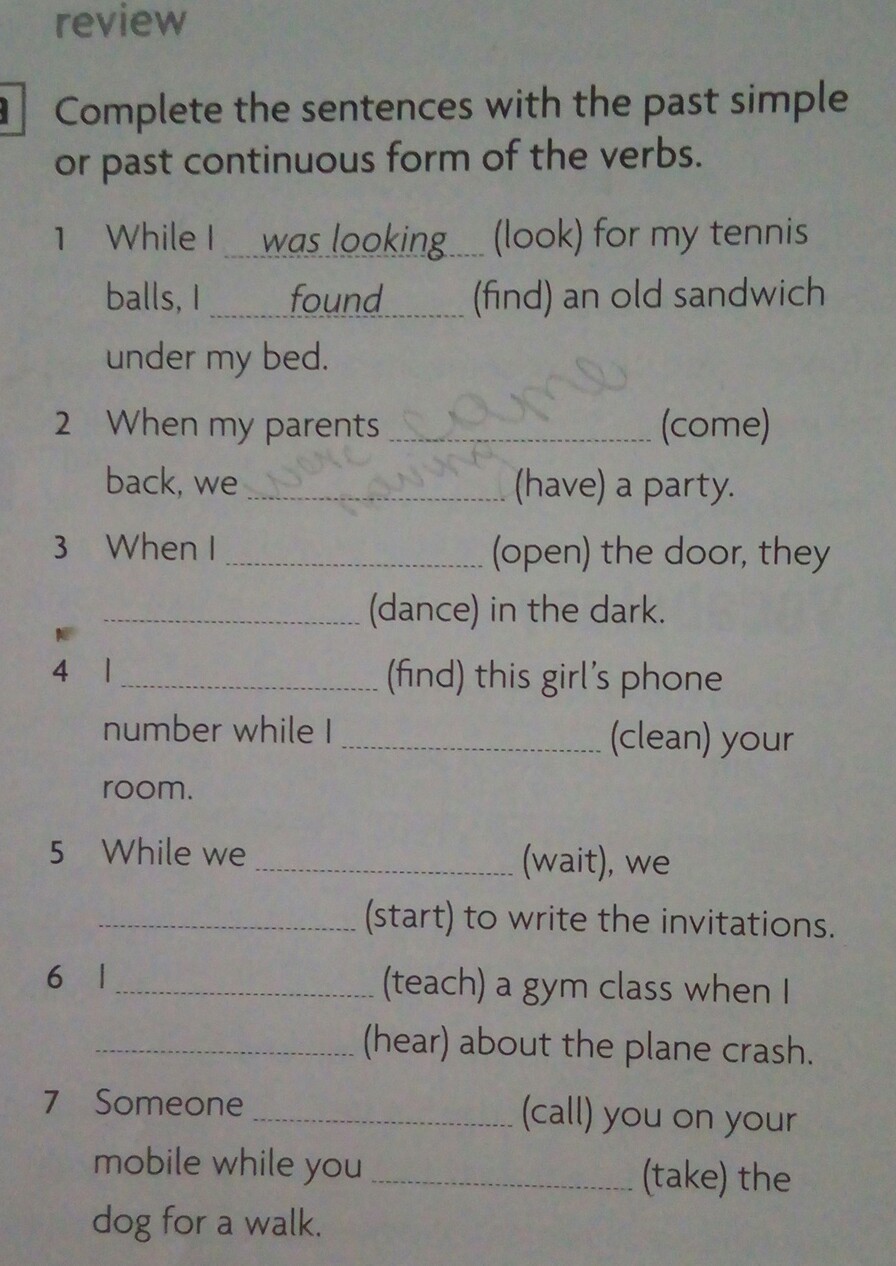 review
Complete the sentences with the past simple
or past continuous form of the verbs.
1 While I was looking (look) for my tennis
balls, I found (find) an old sandwich
under my bed.
2 When my parents (come)
back, we (have) a party.
3 When I (open) the door, they
(dance) in the dark.
4 I (find) this girl's phone
number while I (clean) your
room.
5 While we (wait), we
(start) to write the invitations.
6 I (teach) a gym class when I
(hear) about the plane crash.
7 Someone (call) you on your
mobile while you (take) the
dog for a walk.